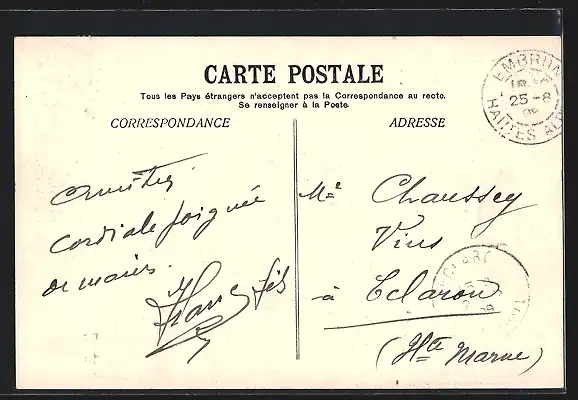 CARTE POSTALE
Tous les Pays étrangers n'acceptent pas la Correspondance au recto.
Se renseigner à la Poste.
CORRESPONDANCE
ADRESSE
EMBRUN
25 - 8
HAUTES ALP
cordiale poignée
de mains.
fils
Chaussey
Vins
à Eclaron
(Hte Marne)